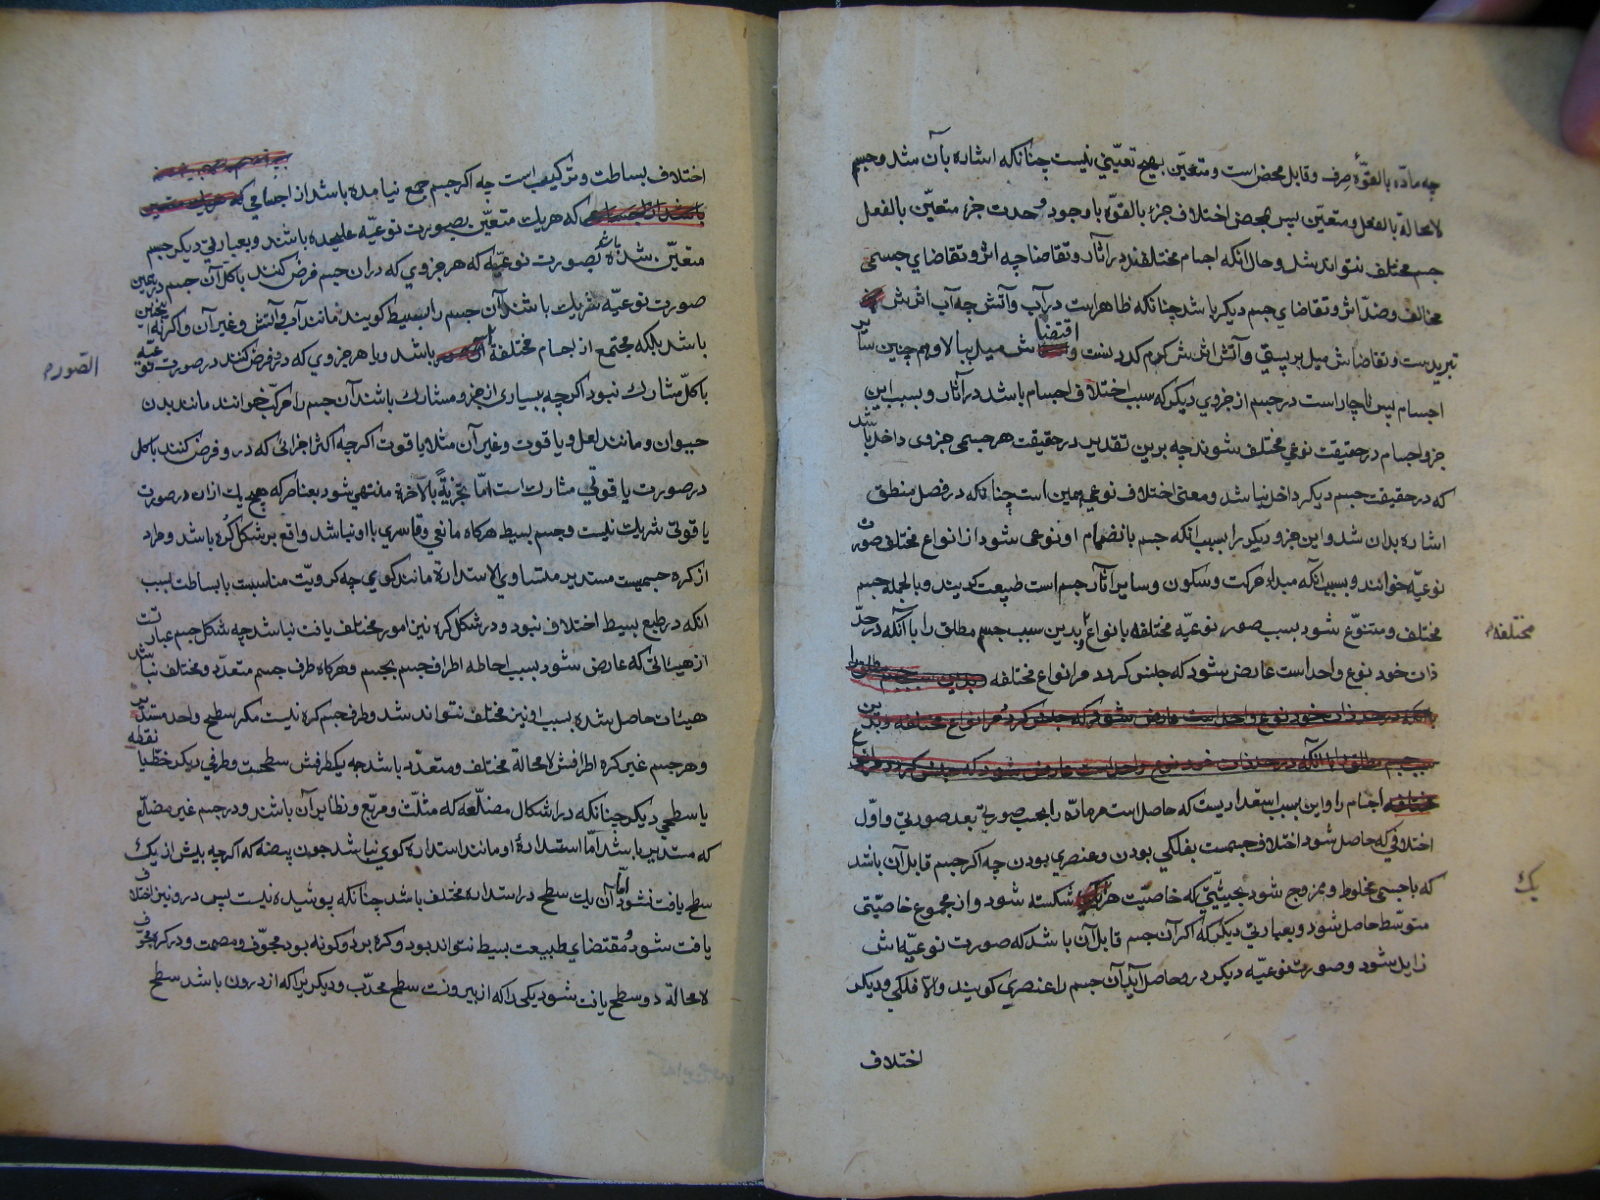 چه مادّه بالقوّه صرف و قابل محض است و متعیّن بهیچ تعیّنی نیست چنانکه اشاره بآن شد و جسم
لامحالة بالفعل و متعیّن پس بمحض اختلاف جزء بالقوّه با وجود وحدت جزء متعیّن بالفعل
جسم مختلف نتواند شد و حال انکه اجسام مختلفند در آثار و تقاضا چه اثر و تقاضاي جسمی
مخالف و ضدّ اثر و تقاضاي جسم دیکر باشد چنانکه ظاهر است در آب و آتش چه آب اثرش
تبریدست و تقاضاش میل بر پستی و آتش اثرش کرم کردنست و اقتضاش میل ببالا و هم چنین سایر
اجسام پس ناچار است در جسم از جزوي دیکر که سبب اختلاف اجسام باشد در آثار و بسبب این
جزو اجسام در حقیقت نوعي مختلف شوند چه برین تقدیر در حقیقت هر جسمی جزوی داخل باشد
که در حقیقت جسم دیکر داخل نباشد و معنی اختلاف نوعي همین است چنانکه در فصل منطق
اشاره بدان شد و این جزو دیکر را بسبب انکه جسم بانضمام او نوعی شود از انواع مختلفه صورت
نوعیّه خوانند و بسبب انکه مبداء حرکت و سکون و سایر آثار جسم است طبیعت کویند و بالجمله جسم
مختلف و متنوّع شود بسبب صور نوعیّه مختلفه بانواع و بدین سبب جسم مطلق را با آنکه در حدّ
مختلفه
ذات خود نوع واحد است عارض شود که جنس کردد مر انواع مختلفه
اجسام را و این بسبب استعدادیست که حاصل است مر مادّه را بحسب صورتی بعد صورتي و اوّل
اختلافي که حاصل شود اختلاف جسمست بفلکي بودن و عنصري بودن چه اکر جسم قابل آن باشد
که با جسمی مخلوط و ممزوج شود بحیثیّتي که خاصیّت هر یک شکسته شود و از مجموع خاصیّتی
یک
متوسّط حاصل شود و بعبارتي دیکر که اکر آن جسم قابل آن باشد که صورت نوعیّه اش
زایل شود و صورت نوعیّه دیکر درو حاصل آید آن جسم را عنصري کویند و الّا فلکي و دیکر
اختلاف
اختلاف بساطت و ترکیب است چه اکر جسم جمع نیامده باشد از اجسامي
که هریک متعیّن بصورت نوعیّه علیحده باشند و بعبارتي دیکر جسم
متعیّن شده باشد بصورت نوعیّه که هر جزوي که در ان جسم فرض کنند با کل آن جسم در همین
صورت نوعیّه شریک باشد آن جسم را بسیط کویند مانند آب و آتش و غیر آن و اکر نه اینچنین
باشد بلکه مجتمع از اجسام مختلفة باشد و یا هر جزوي که درو فرض کنند در صورت نوعیّه
الصّورة
با کلّ مشارك نبود اکرچه بسیاری از جزو مشارك باشد آن جسم را مرکّب خوانند مانند بدن
حیوان و مانند لعل و یاقوت و غیر آن مثلا یاقوت اکرچه اکثر اجزائی که درو فرض کنند با کل
در صورت یاقوتي مشارك است امّا تجزیةً بالآخرة منتهي شود بعناصر که هیچ یك ازان در صورت
یاقوتی شریك نیست و جسم بسیط هرکاه مانعي و قاسري با او نباشد واقع بر شکل کُره باشد و مراد
از کره جسمیست مستدیر متساوي الاستدارة مانند کوي چه کرویّت مناسبت با بساطت بسبب
انکه در طبع بسیط اختلاف نبود و در شکل کره نیز امور مختلف یافت نباشد چه شکل جسم عبارتست
از هیئاتی که عارض شود بسبب احاطه اطراف جسم بجسم و هرکاه طرف جسم متعدّد و مختلف نباشد
هیئات حاصل شده بسبب او نیز مختلف نتواند شد و طرف جسم کره نیست مکر سطح واحد مستدیر
و هر جسم غیر کره اطرافش لامحالة مختلف و متعدّد باشد چه یکطرفش سطحست و طرفي دیکر خط یا نقطه
یا سطحي دیکر چنانکه در اشکال مضلّعه که مثلّث و مربّع و نظایر آن باشند و در جسم غیر مضلّع
که مستدیر باشد امّا استدارهٔ او مانند استداره کوي نباشد چون بیضه که اکرچه بیش از یک
سطح یافت نشود امّا آن یك سطح در استداره مختلف باشد چنانکه پوشیده نیست پس درو نیز اختلاف
یافت شود و مقتضاي طبیعت بسیط نتواند بود و کره بر دو کونه بود مجوّف و مصمت و در کره مجوّف
لامحالة دو سطح یافت شود یکی را که از بیرونست سطح محدّب و دیکریرا که از درون باشد سطح